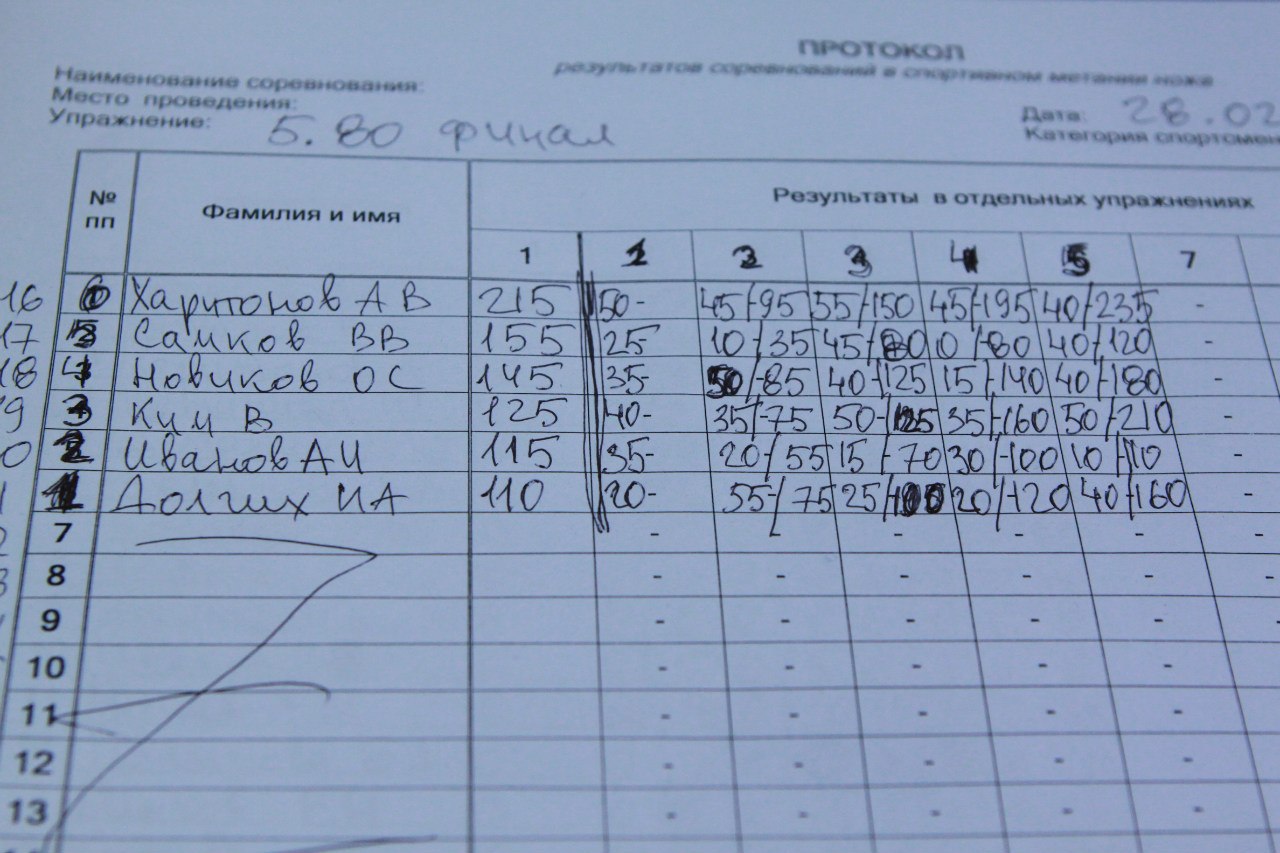 ПРОТОКОЛ
результатов соревнований в спортивном метании ножа
Наименование соревнования:
Место проведения:
Дата: 28.02
Упражнение: 5.80 финал
Категория спортсмен
№ пп Фамилия и имя Результаты в отдельных упражнениях
1 1 2 3 4 5 7
16 Харитонов А В 215 50- 45/-95 55/-150 45/-195 40/235 -
17 Самков ВВ 155 25- 10-/35 45/-80 0/-80 40/-120 -
18 Новиков ОС 145 35- 50/-85 40/-125 15/-140 40/-180 -
9 3 Ким В 125 40- 35/-75 50-/125 35/-160 50/-210 -
0 2 Иванов АИ 115 35- 20-/55 15/-70 30/-100 10/-110 -
1 1 Долгих ИА 110 20- 55-/75 25/-100 20/-120 40/-160 -
7 - - - - - -
8 - - - - - -
9 - - - - -
10 - - - - -
11 - - - - -
12 - - - - -
13 - - - - -